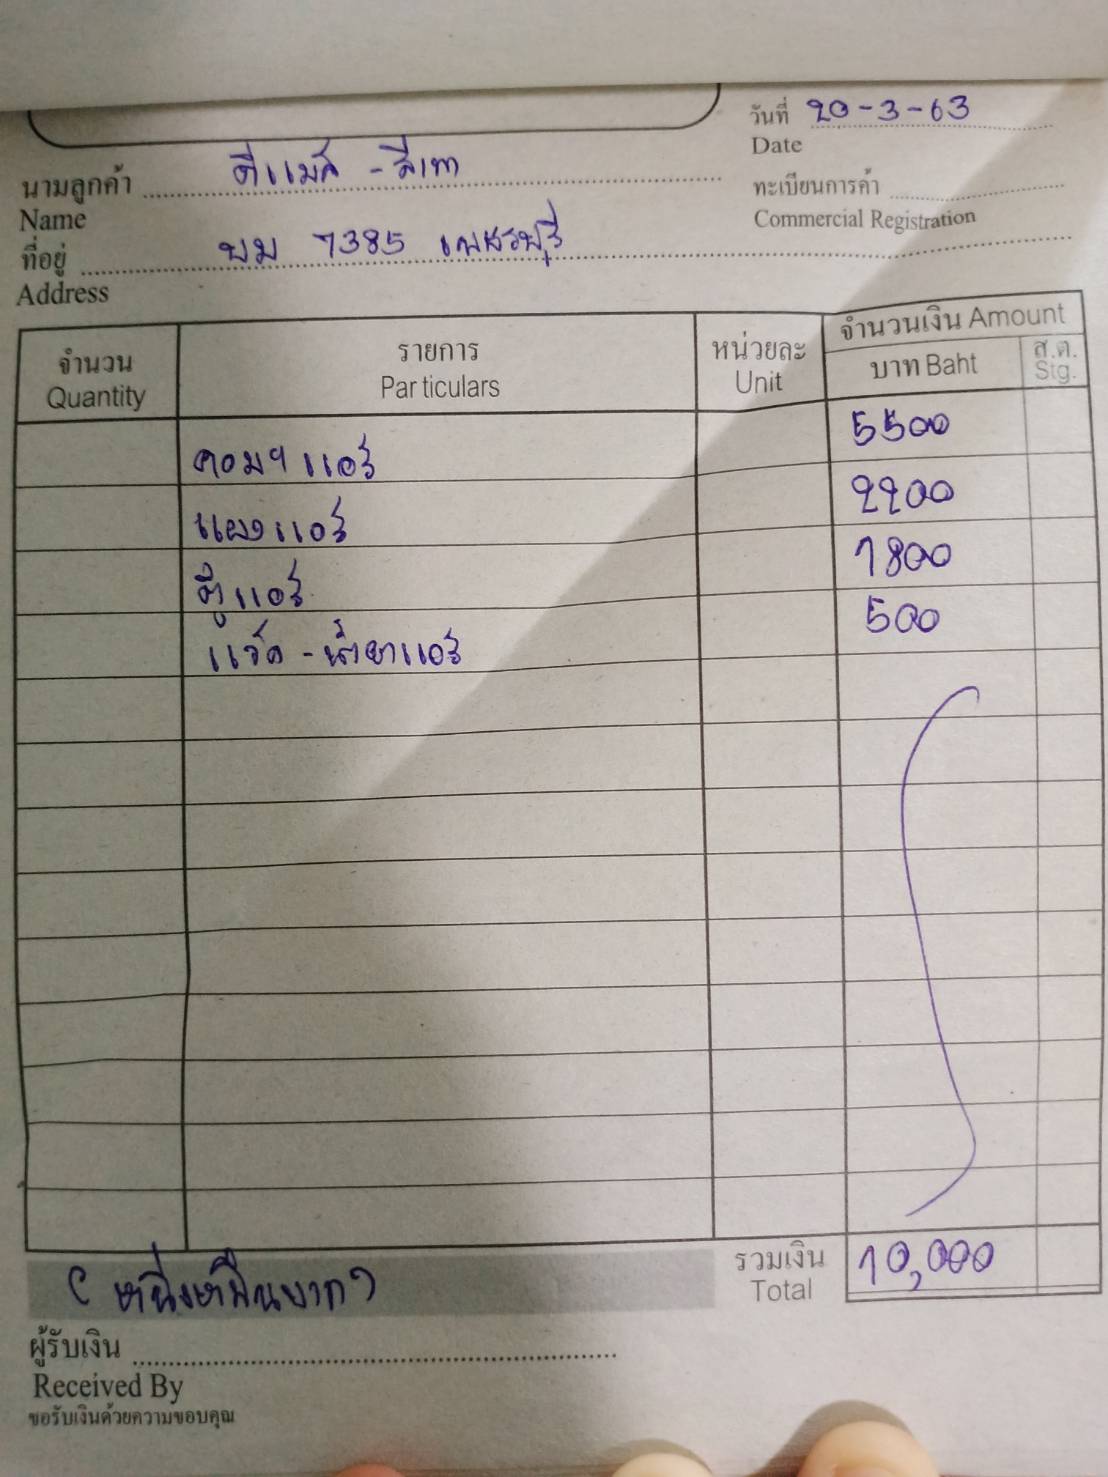 วันที่ 20-3-63
Date
นามลูกค้า ดีแม๊ค - สีเทา
Name
ทะเบียนการค้า
Commercial Registration
ที่อยู่ บม 7385 เพชรบุรี
Address
จำนวน
Quantity
รายการ
Particulars
หน่วยละ
Unit
จำนวนเงิน Amount
บาท Baht
ส.ต.
Stg.
คอมฯ แอร์ 5500
แผงแอร์ 2200
ตู้แอร์ 1800
แว๊ค - น้ำยาแอร์ 500
(หนึ่งหมื่นบาท)
รวมเงิน 10,000
Total
ผู้รับเงิน
Received By
ขอรับเงินด้วยความขอบคุณ